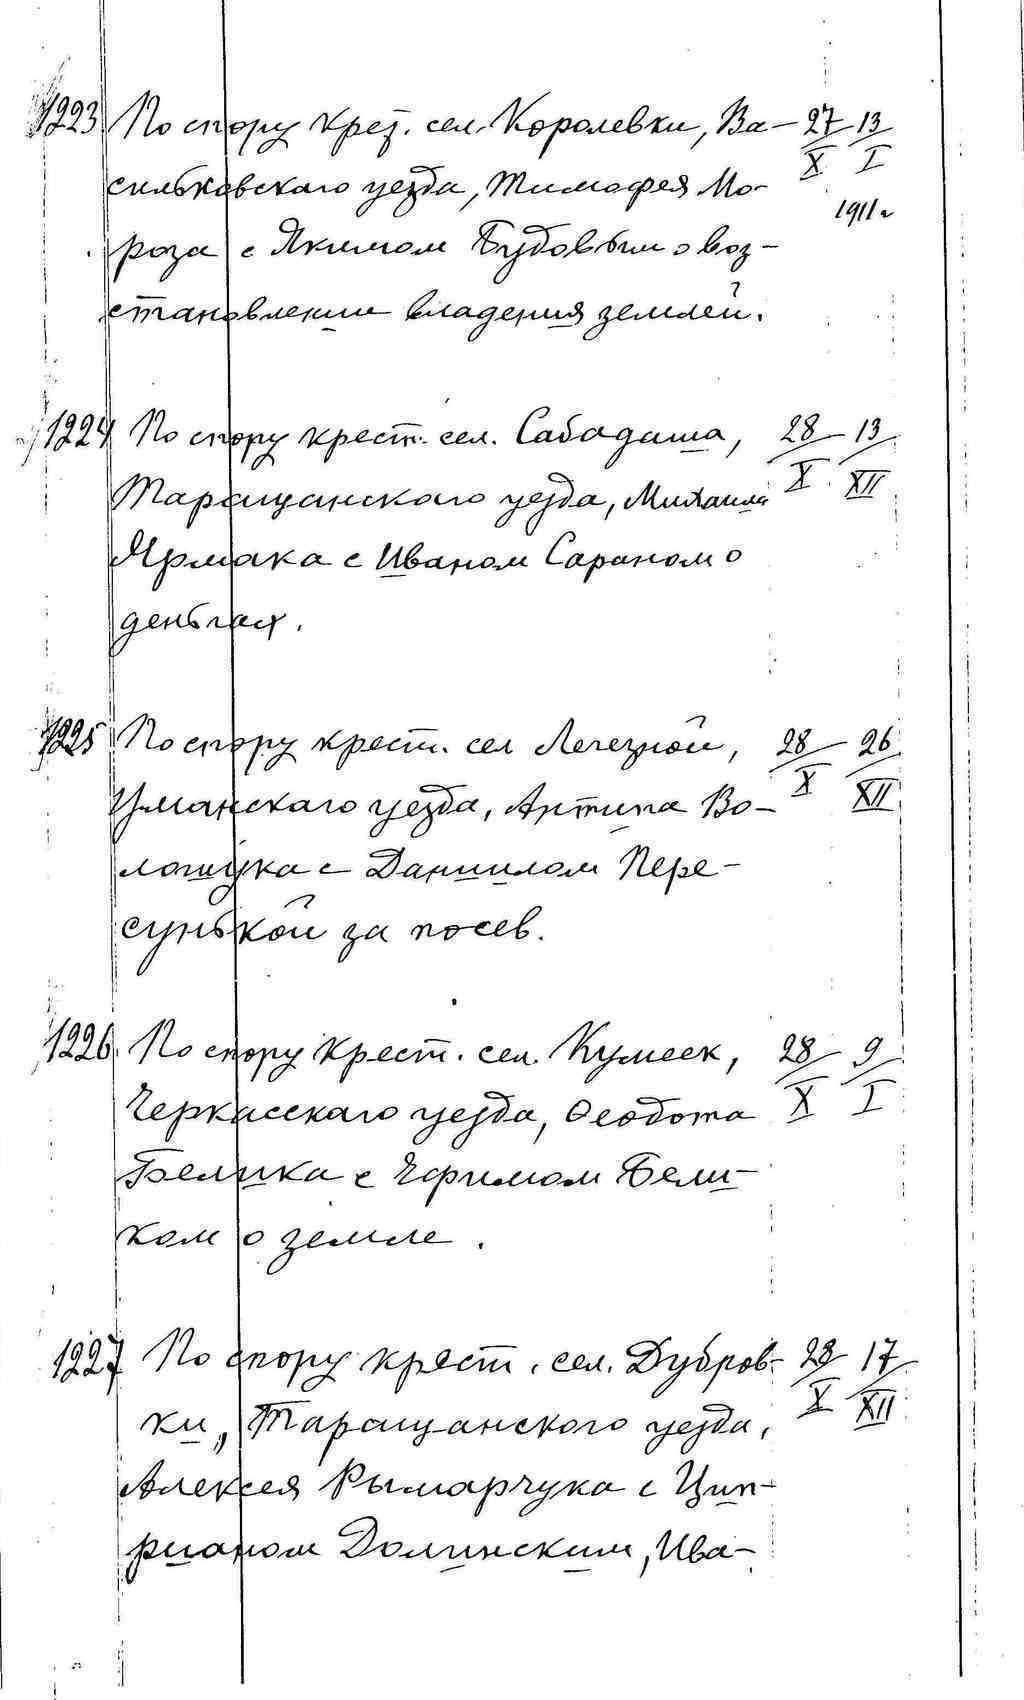 1223 По спору крез. сел. Королевки, Ва- 27 13
сильковскаго уезда, Тимофея Мо- X I
роза с Якимом Будовым о воз- 1911 г
становлении владения землей.
1224 По спору крест. сел. Сабадаша, 28 13
Таращанскаго уезда, Михаила X XII
Ярмака с Иваном Сараном о
деньгах.
1225 По спору крест. сел Легезиной, 28 26
Уманскаго уезда, Антипа Во- X XII
лощука с Даниилом Пере-
сунькой за посев.
1226 По спору крест. сел. Кумеек, 28 9
Черкасскаго уезда, Феодота X I
Белика с Ефимом Бели-
ком о земле.
1227 По спору крест. сел. Дубров- 28 17
ки, Таращанского уезда, X XII
Алексея Рымарчука с Цип-
рианом Долинским, Ива-